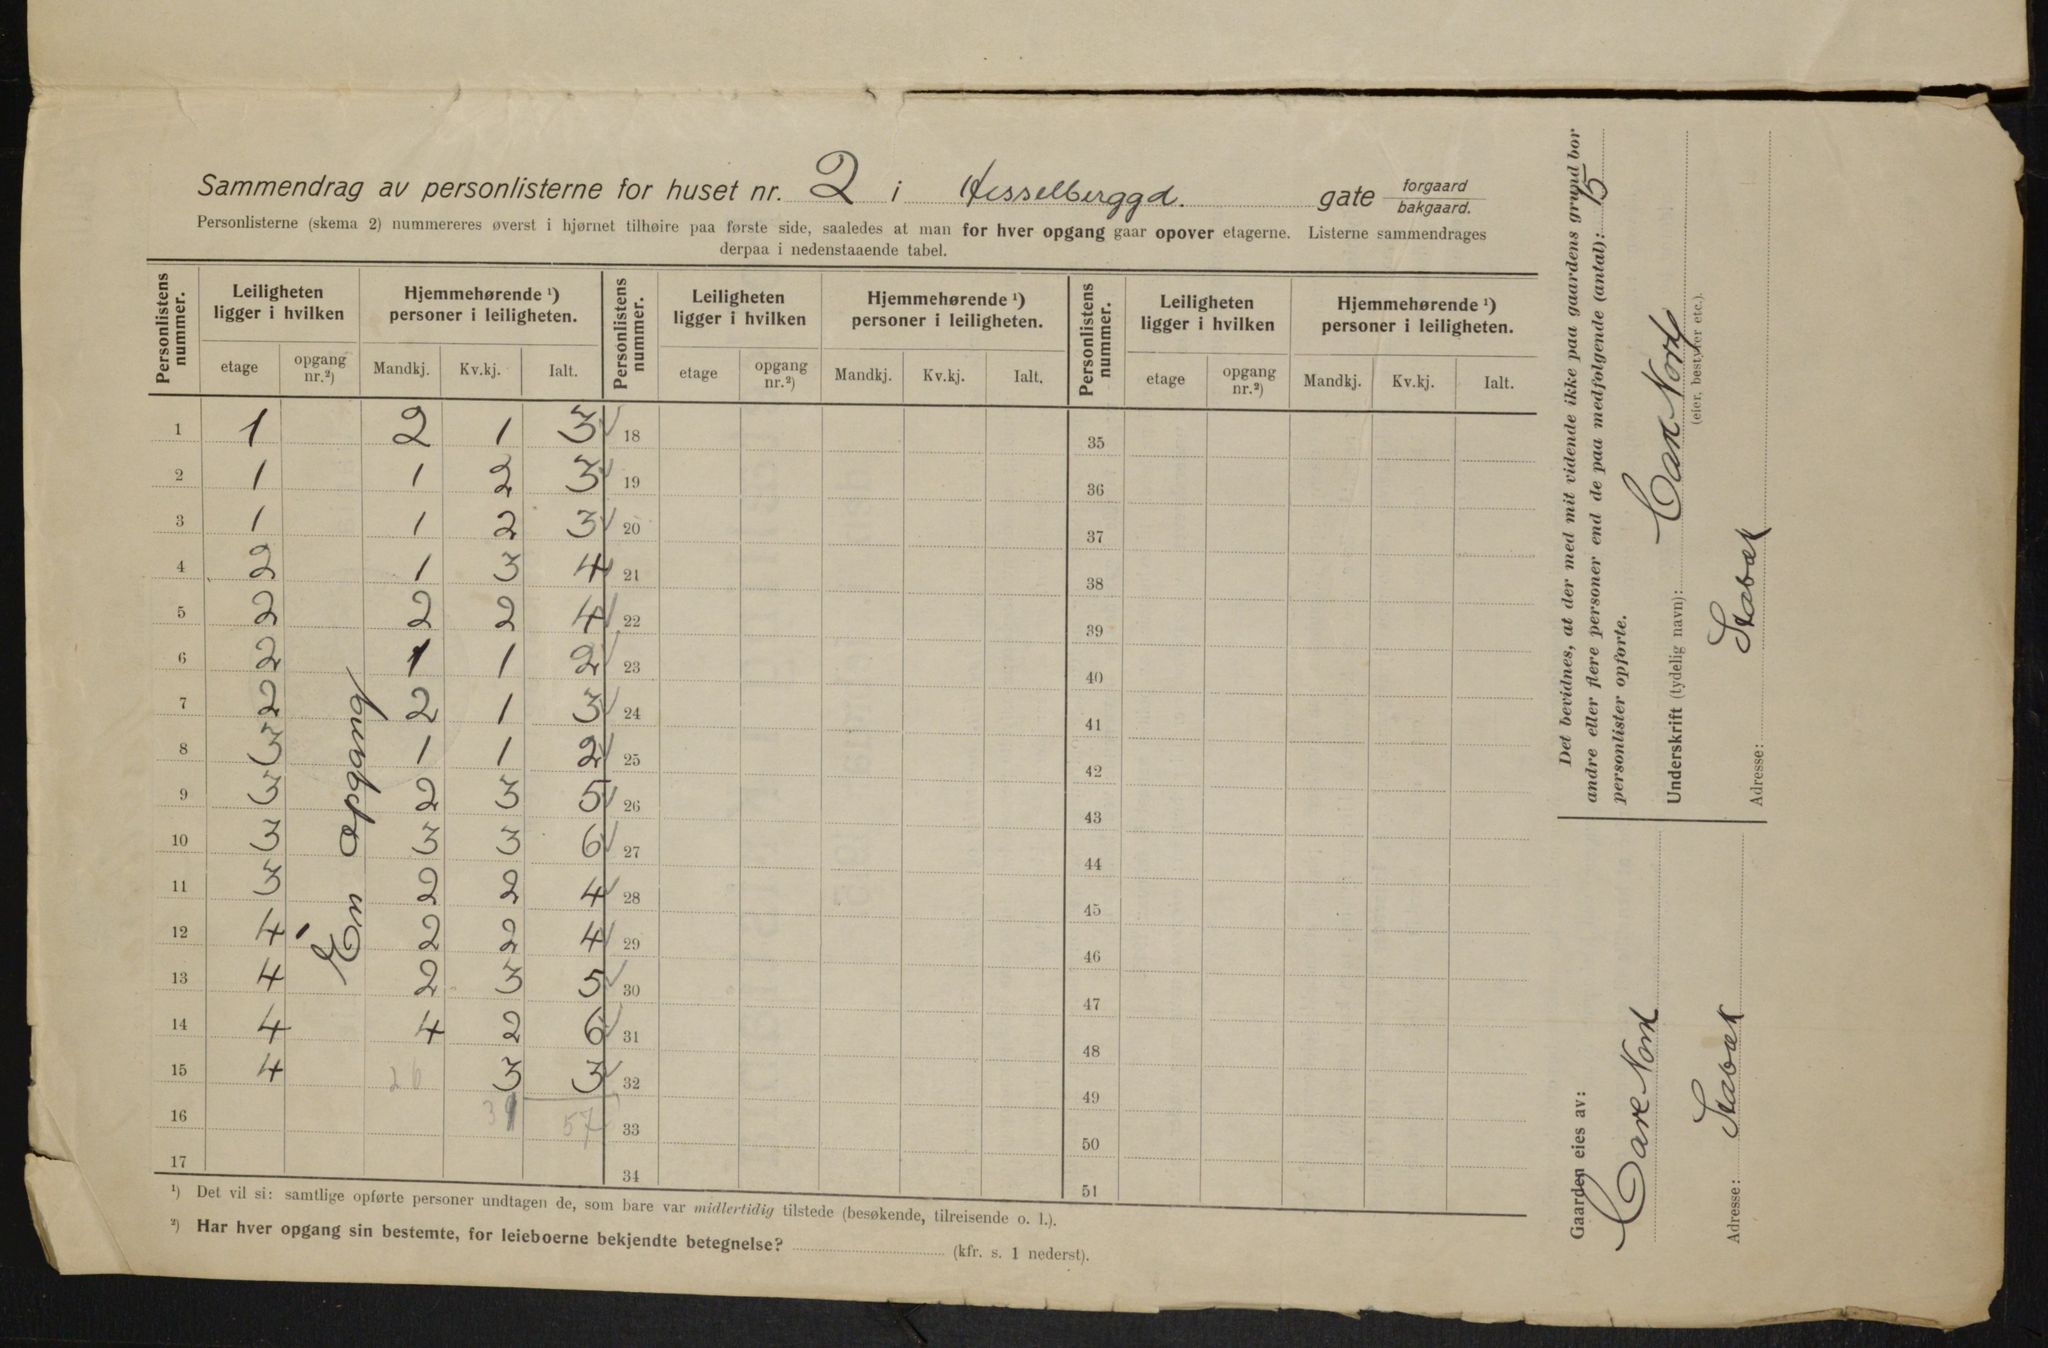 Sammendrag av personlisterne for huset nr. 2 i Hesselberggd. gate forgaard bakgaard.
Personlisterne (skema 2) nummereres øverst i hjørnet tilhøire paa første side, saaledes at man for hver opgang gaar opover etagerne. Listerne sammendrages
derpaa i nedenstaaende tabel.
Personlistens nummer. Leiligheten ligger i hvilken Hjemmehørende ¹) personer i leiligheten. Personlistens nummer. Leiligheten ligger i hvilken Hjemmehørende ¹) personer i leiligheten. Personlistens nummer. Leiligheten ligger i hvilken Hjemmehørende ¹) personer i leiligheten.
etage opgang nr.²) Mandkj. Kv.kj. Ialt. etage opgang nr.²) Mandkj. Kv.kj. Ialt. etage opgang nr.²) Mandkj. Kv.kj. Ialt.
1 1 2 1 3 18 35
2 1 1 2 3 19 36
3 1 1 2 3 20 37
4 2 1 3 4 21 38
5 2 2 2 4 22 39
6 2 1 1 2 23 40
7 2 2 1 3 24 41
8 3 1 1 2 25 42
9 3 2 3 5 26 43
10 3 3 3 6 27 44
11 3 2 2 4 28 45
12 4 2 2 4 29 46
13 4 2 3 5 30 47
14 4 4 2 6 31 48
15 4 26 3 3 32 49
16 31 57 33 50
17 34 51
En opgang
¹) Det vil si: samtlige opførte personer undtagen de, som bare var midlertidig tilstede (besøkende, tilreisende o. l.).
²) Har hver opgang sin bestemte, for leieboerne bekjendte betegnelse? (kfr. s. 1 nederst).
Det bevidnes, at der med mit vidende ikke paa gaardens grund bor
andre eller flere personer end de paa medfolgende (antal): 15
personlister opforte.
Underskrift (tydelig navn): Carl Nord
(eier, bestyrer etc.).
Adresse: Stabæk
Gaarden eies av:
Carl Nord
Adresse: Stabæk